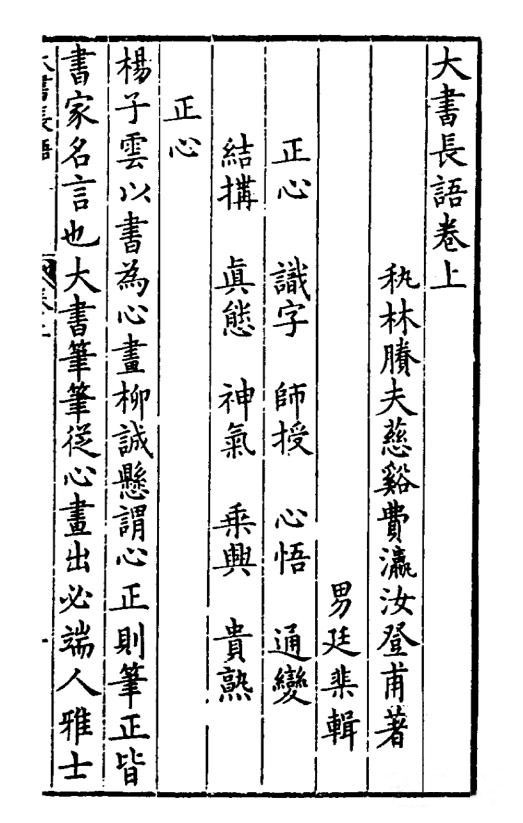 大書長語卷上
秇林賸夫慈谿費瀛汝登甫著
男廷棐輯
正心 識字 師授 心悟 通變
結搆 眞態 神氣 乘興 貴熟
正心
楊子雲以書為心畫柳誠懸謂心正則筆正皆
書家名言也大書筆筆從心畫出必端人雅士